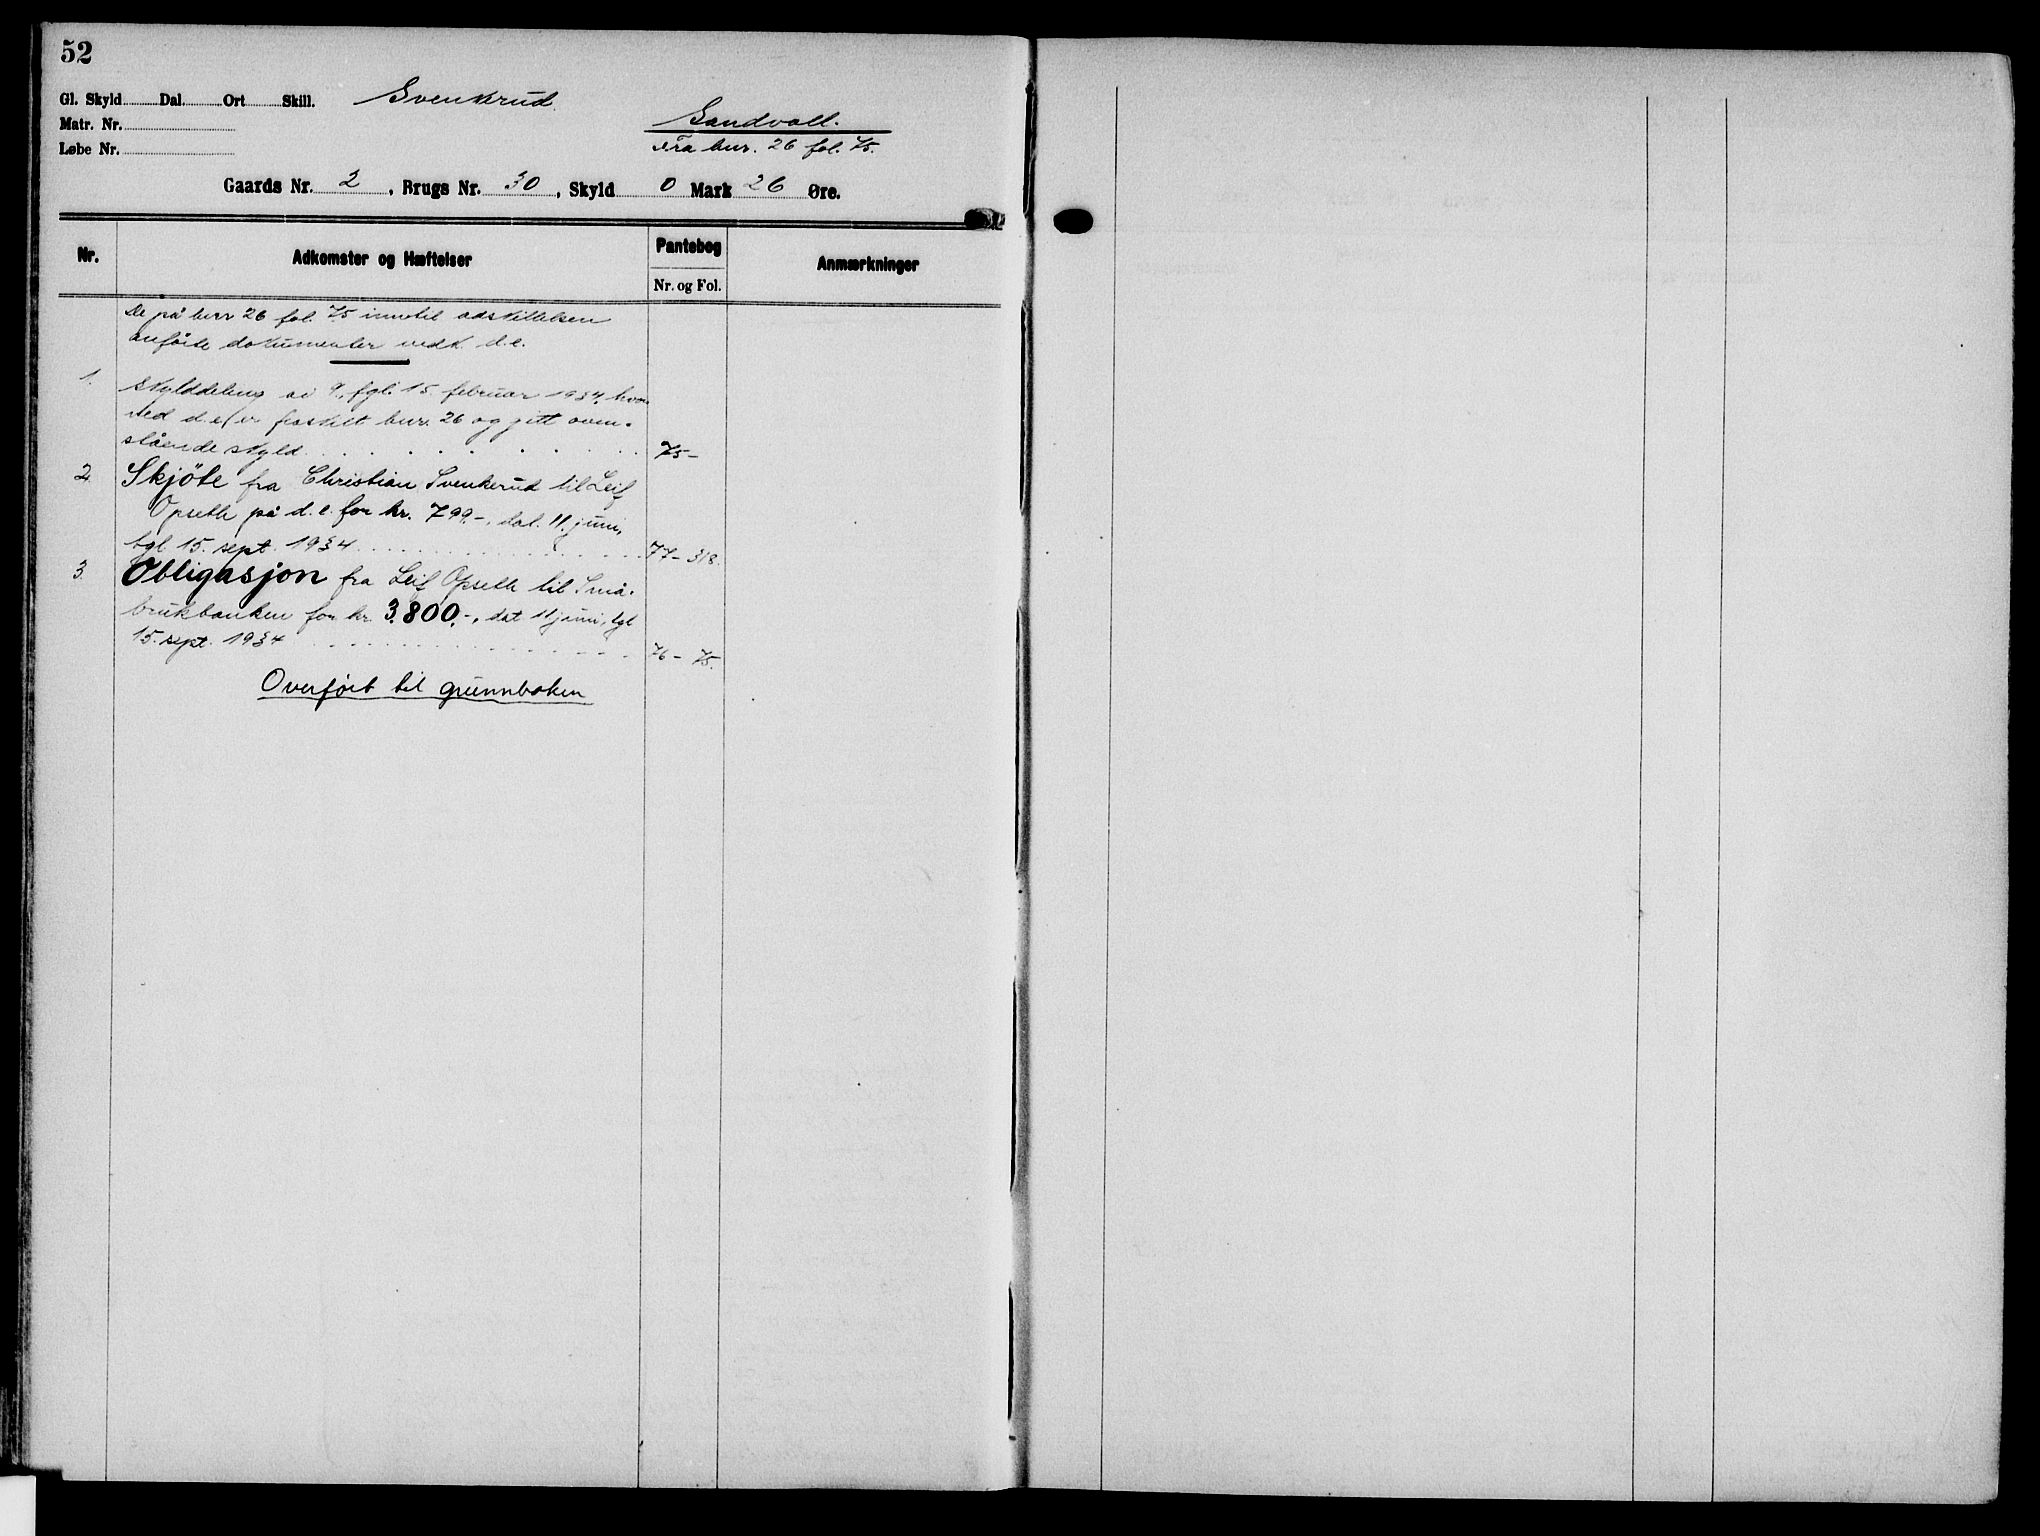 52
Gl. Skyld Dal. Ort Skill. Svenkrud
Matr. Nr. Sandvoll.
Løbe Nr. Fra bnr. 26 fol. 75.
Gaards Nr. 2, Brugs Nr. 30, Skyld 0 Mark 26 Øre.
Nr. Adkomster og Hæftelser Pantebog Anmærkninger
Nr. og Fol.
De på bnr 26 fol. 75 inntil adskillelsen
anførte dokumenter vedk. d.e.
1. Skylddeling av 9., tgl. 15. februar 1934, hvor-
ved d.e. er fraskilt bnr. 26 og gitt oven-
stående skyld 75-
2. Skjöte fra Christian Svenkerud til Leif
Opseth på d.e. for kr. 799.-, dat. 11. juni,
tgl. 15. sept. 1934 77-318.
3. Obligasjon fra Leif Opseth til Små-
brukbanken for kr. 3.800.-, dat 11 juni, tgl
15. sept. 1934 76-75.
Overført til grunnboken